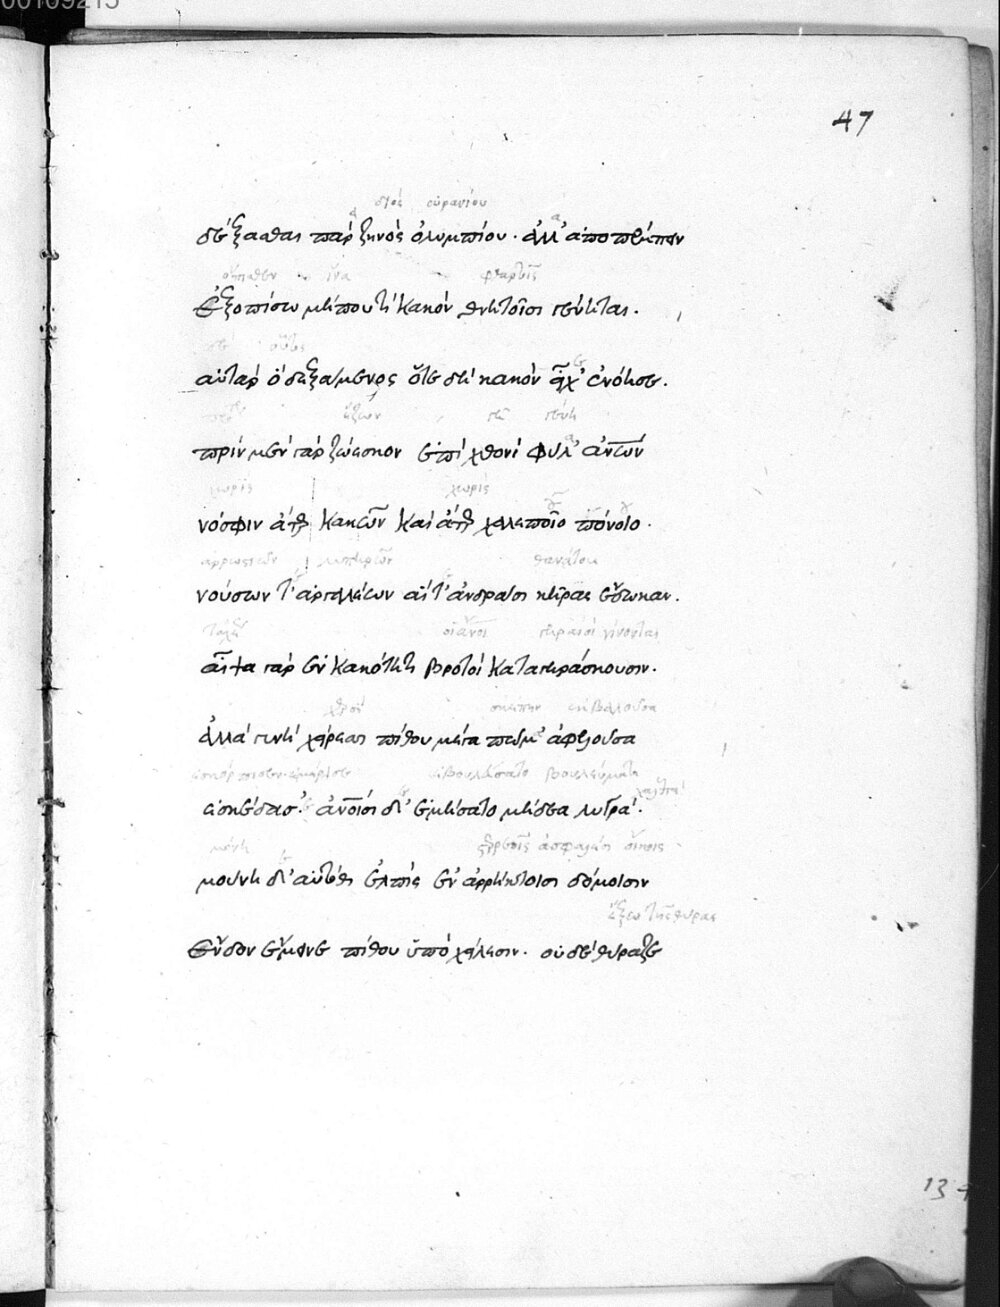 00109215
47
διὸς οὐρανίου
δέξασθαι παρ ζηνὸς ὀλυμπίου · ἀλλ' ἀποπέμπειν
ὄπισθεν ἵνα φθαρτοῖς
ἐξοπίσω μήπου τί κακὸν θνητοῖσι γένηται.
δὲ οὗτος
αὐτὰρ ὁ δεξάμενος ὅτε δὴ κακὸν εἶχ' ἐνόησε.
ἔζων γῆ γένη
πρὶν μὲν γὰρ ζώεσκον ἐπὶ χθονὶ φῦλ' ἀνθρώπων
χωρὶς χωρὶς
νόσφιν ἄτερ κακῶν καὶ ἄτερ χαλεποῖο πόνοιο.
ἀρρωστιῶν θανάτου
νούσων τ' ἀργαλέων αἵ τ' ἀνδράσι κῆρας ἔδωκαν.
οἱ ἄνοι γηραιοὶ γίνονται
αἶψα γὰρ ἐν κακότητι βροτοὶ καταγηράσκουσιν.
χερσί σκέπην ἐκβαλοῦσα
ἀλλὰ γυνὴ χείρεσσι πίθου μέγα πῶμ' ἀφελοῦσα
ἐσκόρπισεν ἐμέρισε ἐβουλεύσατο βουλεύματα
χαλεπά
ἐσκέδασ'· ἀνοισι δ' ἐμήσατο μήδεα λυγρά.
μόνη ἀσφαλέσι οἴκοις
μούνη δ' αὐτόθι ἐλπὶς ἐν ἀρρήκτοισι δόμοισιν
ἔξω τῆς θύρας
ἔνδον ἔμεινε πίθου ὑπὸ χείλεσιν. οὐδὲ θύραζε
13